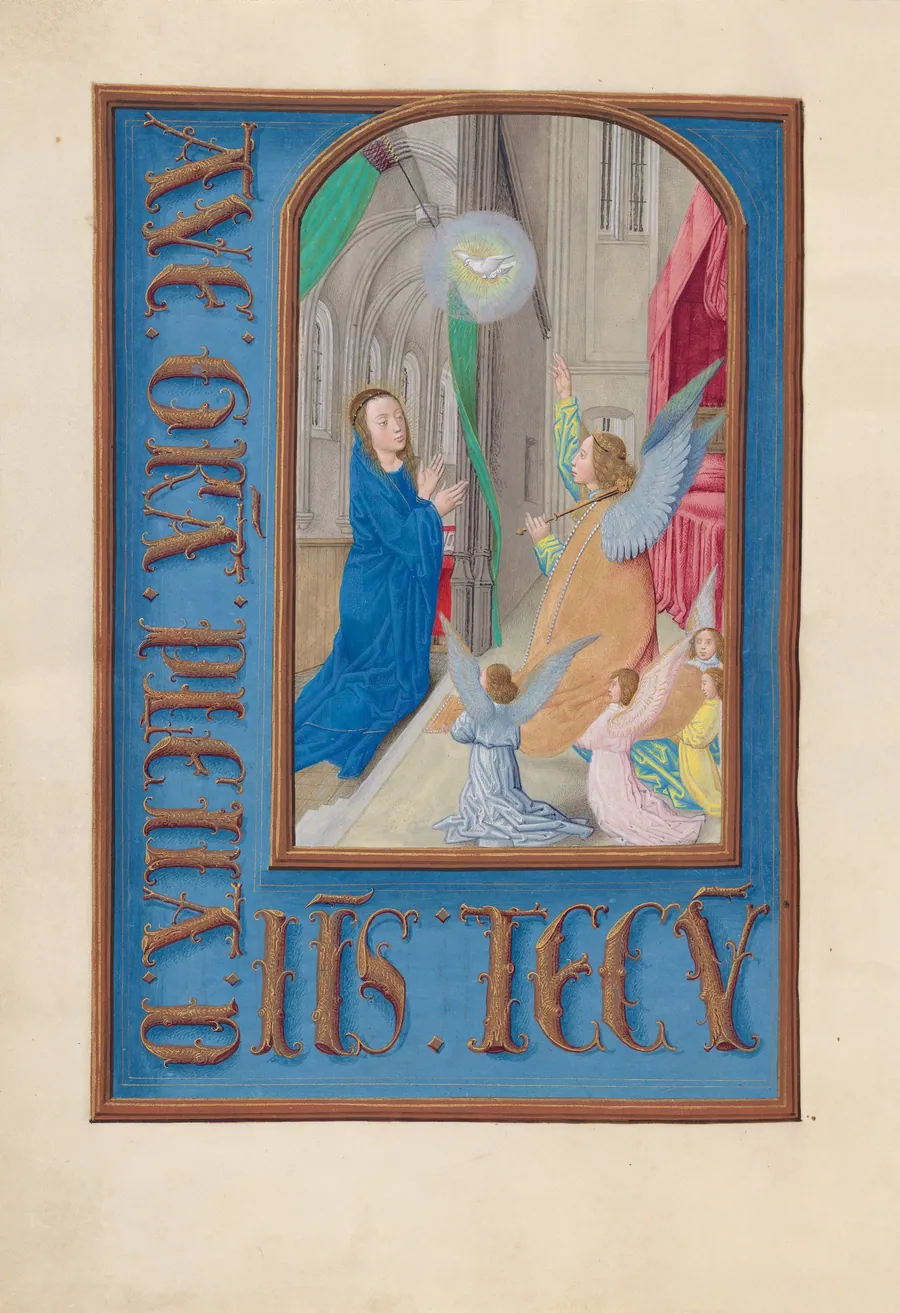 AVE : GRĀ : PLENA : D
N̄S : TECV̄